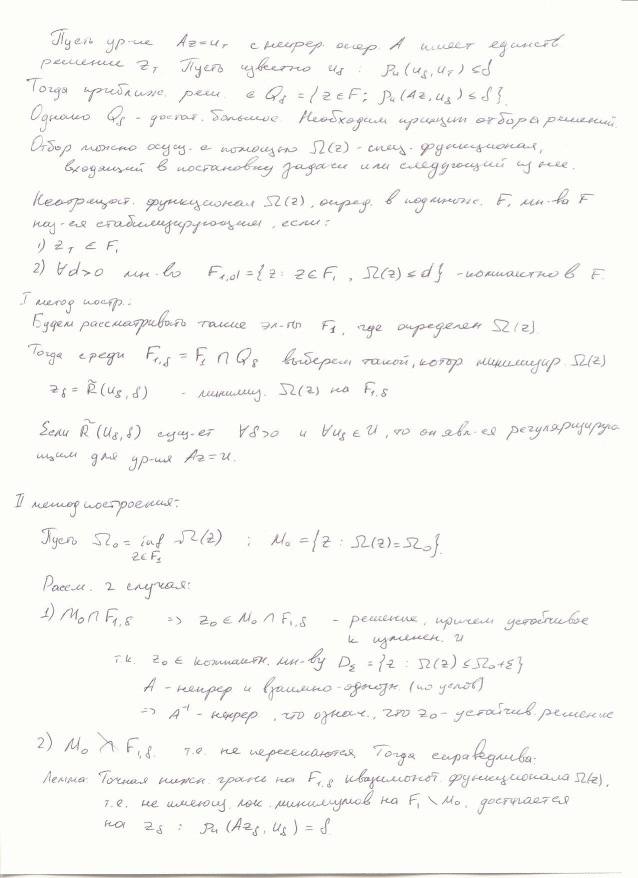 Пусть ур-ие Az=uт с непрер. опер. A имеет единств.
решение zт. Пусть известно uδ : ρu(uδ, uт) ≤ δ
Тогда приближ. реш. ∈ Qδ = {z∈F; ρu(Az, uδ) ≤ δ}.
Однако Qδ - достат. большое. Необходим принцип отбора решений.
Отбор можно осущ. с помощью Ω(z) - спец. функционал,
входящий в постановку задачи или следующий из нее.
Неотрицат. функционал Ω(z), опред. в подмнож. F₁ мн-ва F
наз-ся стабилизирующим, если:
1) zт ∈ F₁
2) ∀d>0 мн-во F₁,d = {z: z∈F₁, Ω(z) ≤ d} - компактно в F.
I метод постр.:
Будем рассматривать такие эл-ты F₁, где определен Ω(z)
Тогда среди F₁,δ = F₁ ∩ Qδ выберем такой, котор минимизир. Ω(z)
zδ = R̃(uδ, δ) - минимиз. Ω(z) на F₁,δ
Если R̃(uδ, δ) сущ-ет ∀δ>0 и ∀uδ ∈ U, то он явл-ся регуляризирую
щим для ур-ия Az=u.
II метод построения:
Пусть Ω₀ = inf Ω(z) ; M₀ = {z : Ω(z)=Ω₀}.
z∈F₁
Рассм. 2 случая:
1) M₀ ∩ F₁,δ => z₀ ∈ M₀ ∩ F₁,δ - решение, причем устойчивое
к изменен. u
т.к. z₀ ∈ компактн. мн-ву Dε = {z : Ω(z) ≤ Ω₀+ε}
A - непрер и взаимно-однозн. (по услов)
=> A⁻¹ - непрер., что означ., что z₀ - устойчив. решение
2) M₀ ∩ F₁,δ. т.е. не пересекаются. Тогда справедлива:
Лемма: Точная нижн. грань на F₁,δ квазимонот. функционала Ω(z),
т.е. не имеющ. лок. минимумов на F₁ \ M₀, достигается
на zδ : ρu(Azδ, uδ) = δ.